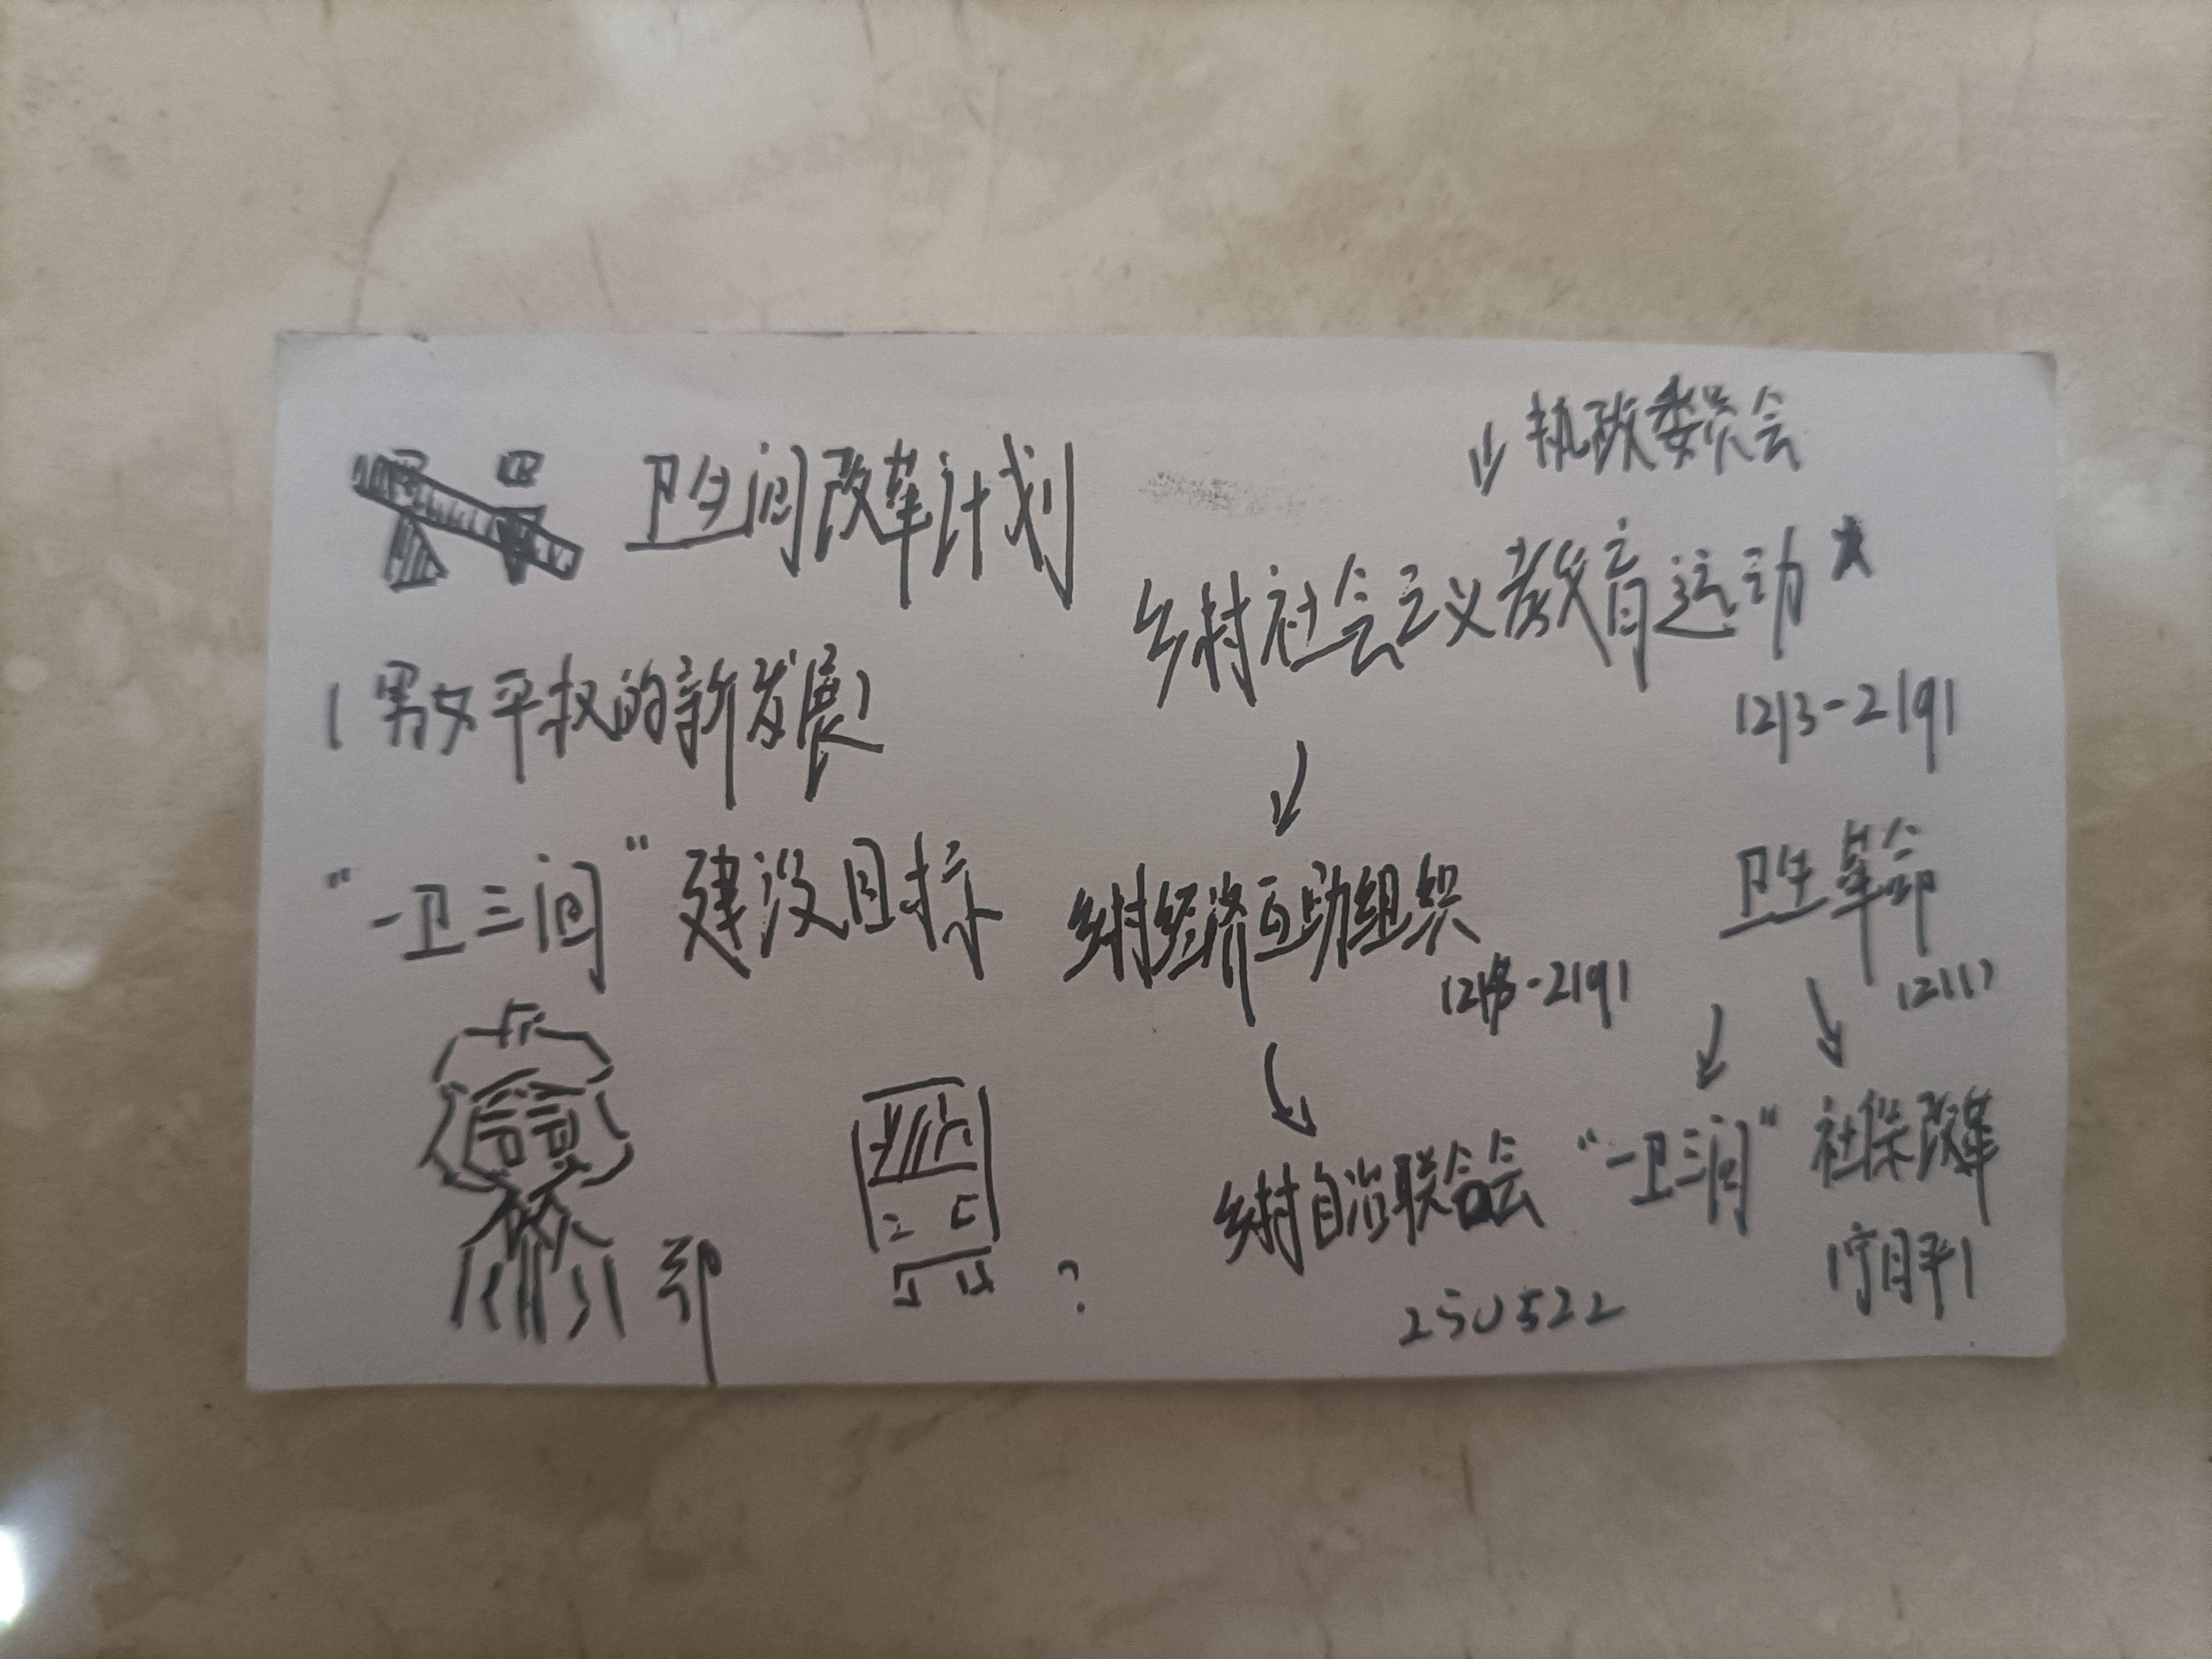 卫生间改革计划
(男女平权的新发展)
"一卫三间"建设目标
邹
?
执政委员会
乡村社会主义教育运动★
(213-219)
乡村经济互动组织
乡村自治联合会
卫生革命
(211)
"一卫三间"
社保改革
250522